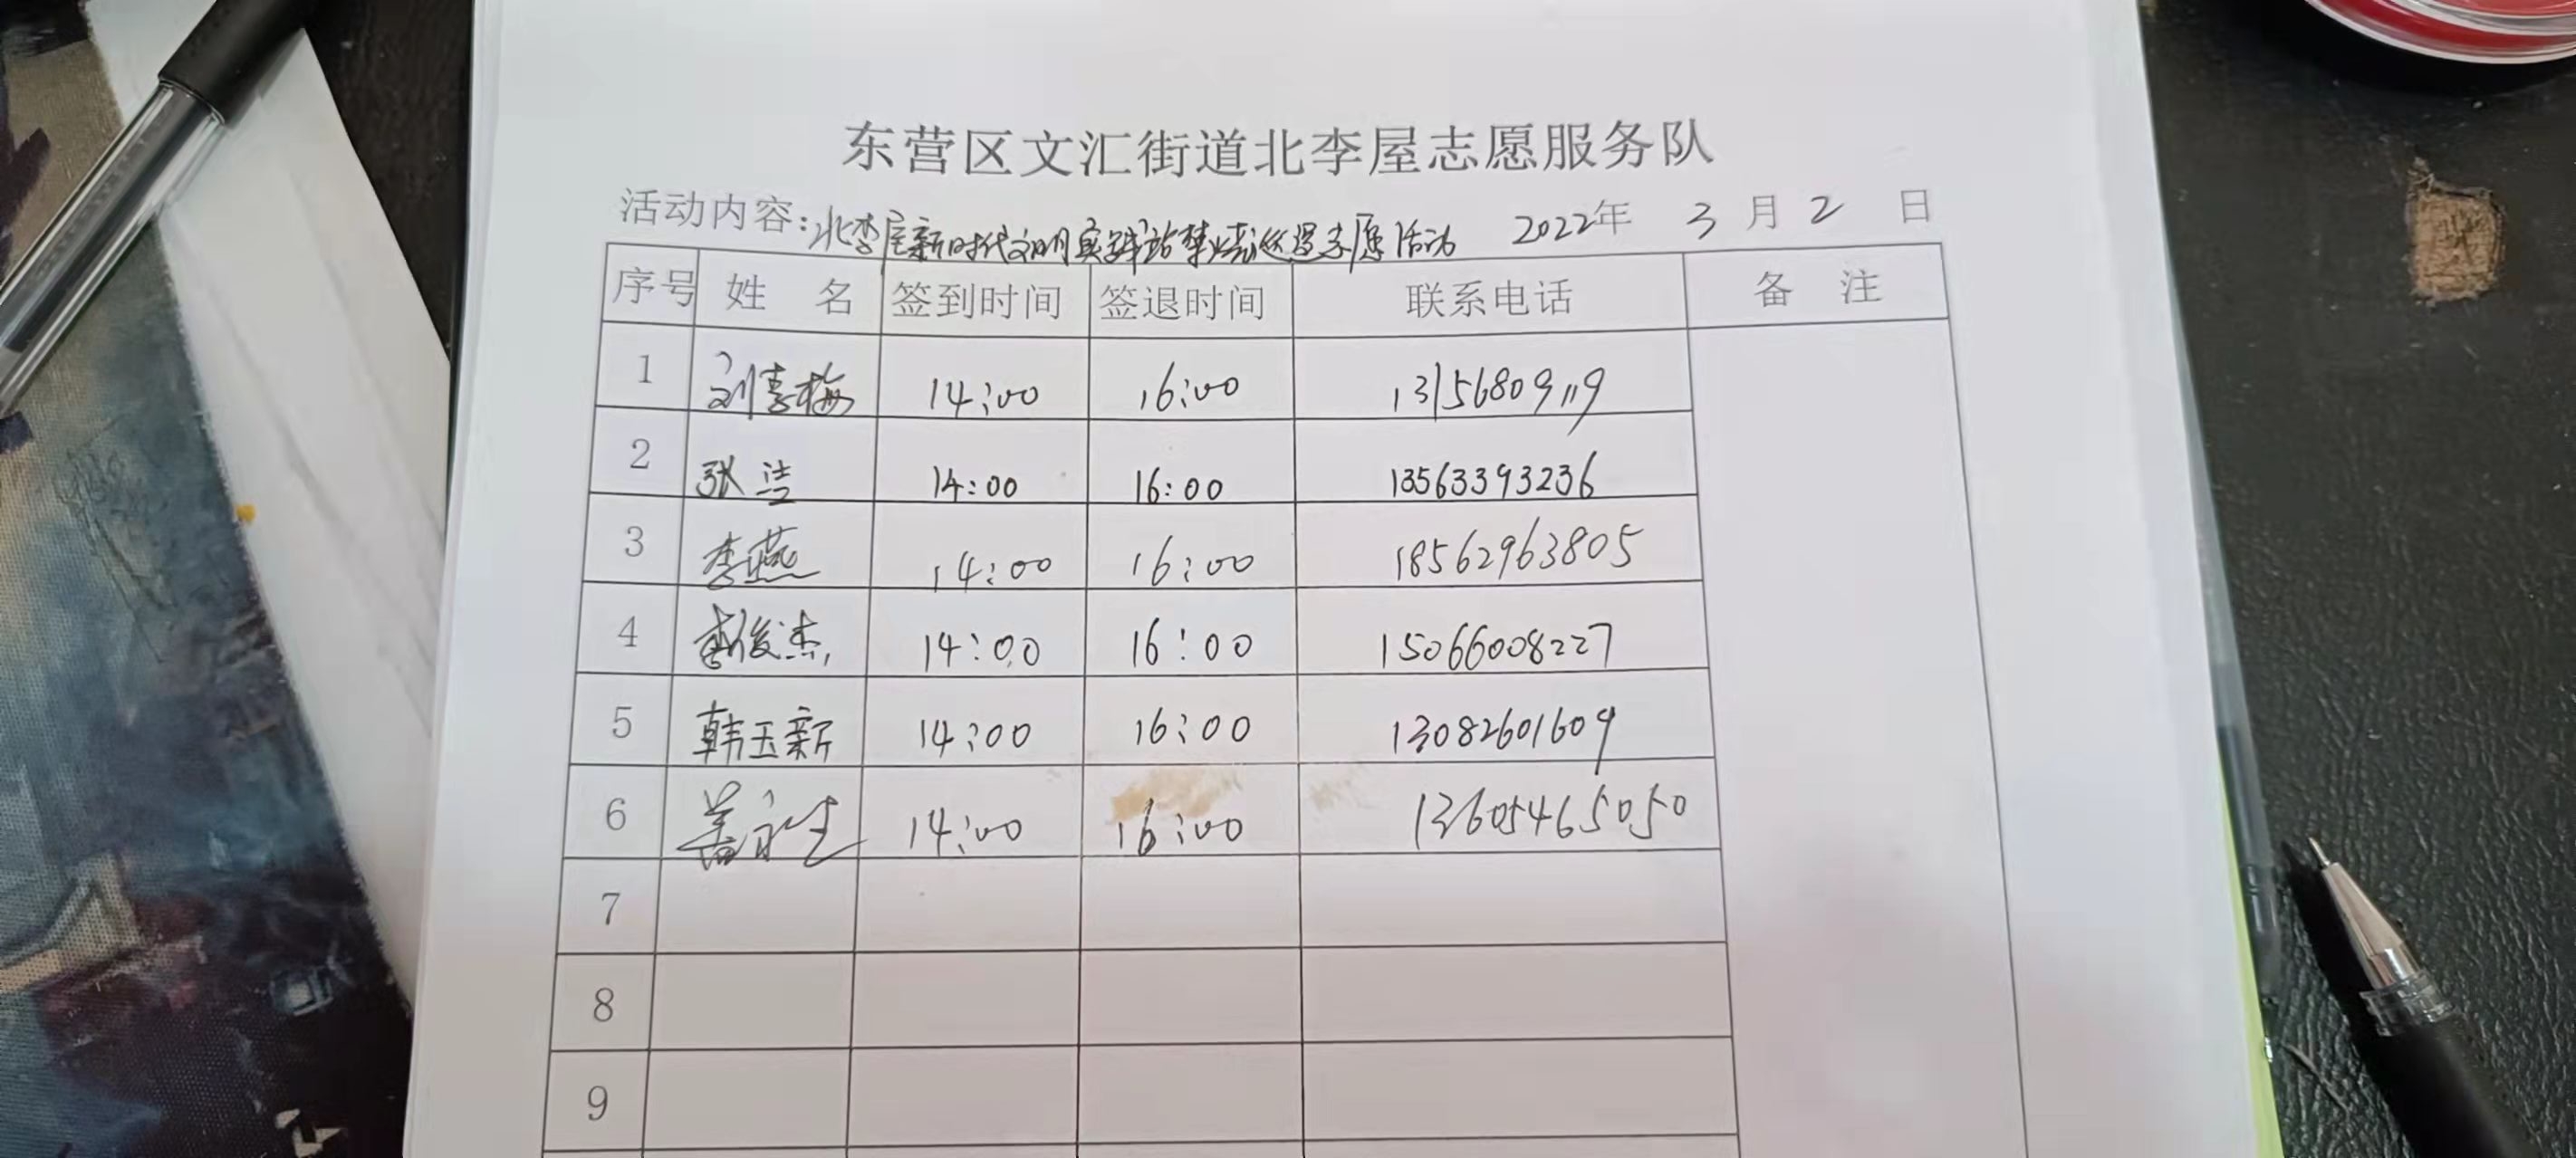 东营区文汇街道北李屋志愿服务队
活动内容:北李屋新时代文明实践站禁烧巡逻志愿活动 2022年 3 月 2 日
序号 姓 名 签到时间 签退时间 联系电话 备 注
1 刘春梅 14:00 16:00 13156809119
2 张洁 14:00 16:00 13563393236
3 李燕 14:00 16:00 18562963805
4 俊杰 14:00 16:00 15066008227
5 韩玉新 14:00 16:00 13082601609
6 盖永生 14:00 16:00 13605465050
7
8
9